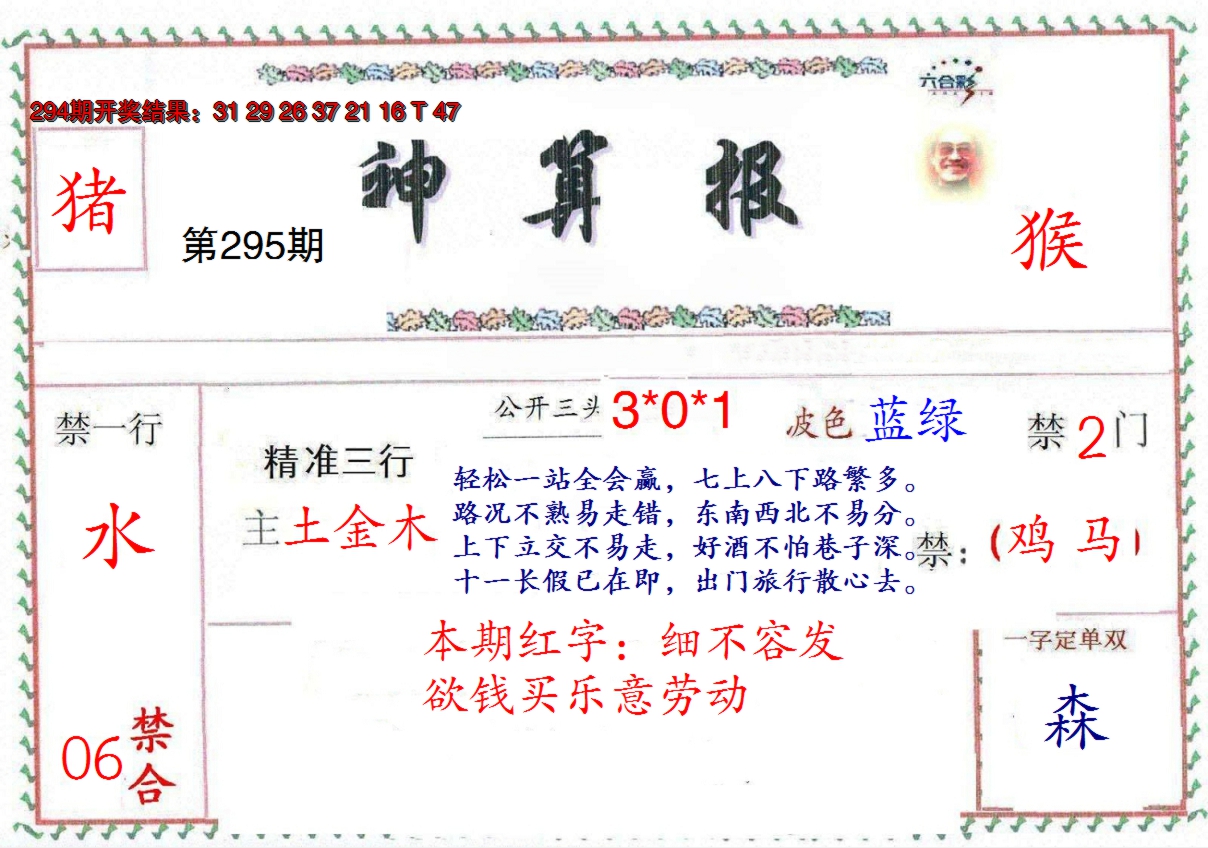 六合彩
294期开奖结果：31 29 26 37 21 16 T 47
神算报
猪
第295期
猴
禁一行
水
06禁合
精准三行
主土金木
公开三头 3*0*1
波色 蓝绿
禁2门
轻松一站全会赢，七上八下路繁多。
路况不熟易走错，东南西北不易分。
上下立交不易走，好酒不怕巷子深。
十一长假已在即，出门旅行散心去。
禁：（鸡 马）
本期红字：细不容发
欲钱买乐意劳动
一字定单双
森